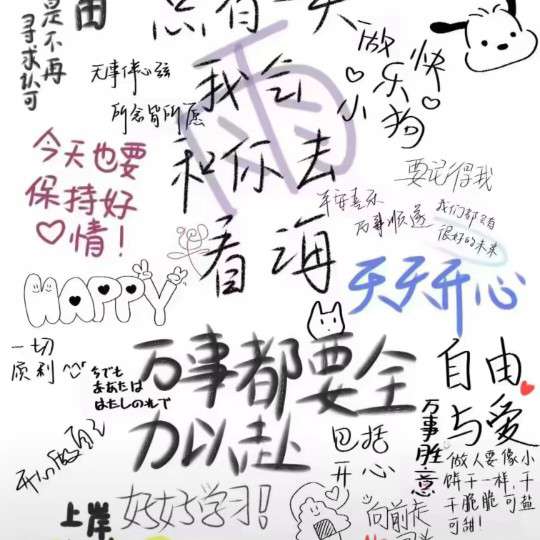 是不再
寻求认可
由
总有一天
我会
和你去
看海
雨
做
快
乐
小狗
无事绊心弦
所念皆所愿
今天也要
保持好
心情！
要记得我
平安喜乐
万事顺遂
我们都会有
很好的未来
HAPPY
天天开心
一切
顺利
今でも
あなたは
わたしの光
万事都要全
力以赴
自由
与爱
开心做自己
包括
开心
万事胜意
做人要像小
饼干一样，干
干脆脆可盐
可甜！
好好学习！
上岸
向前走